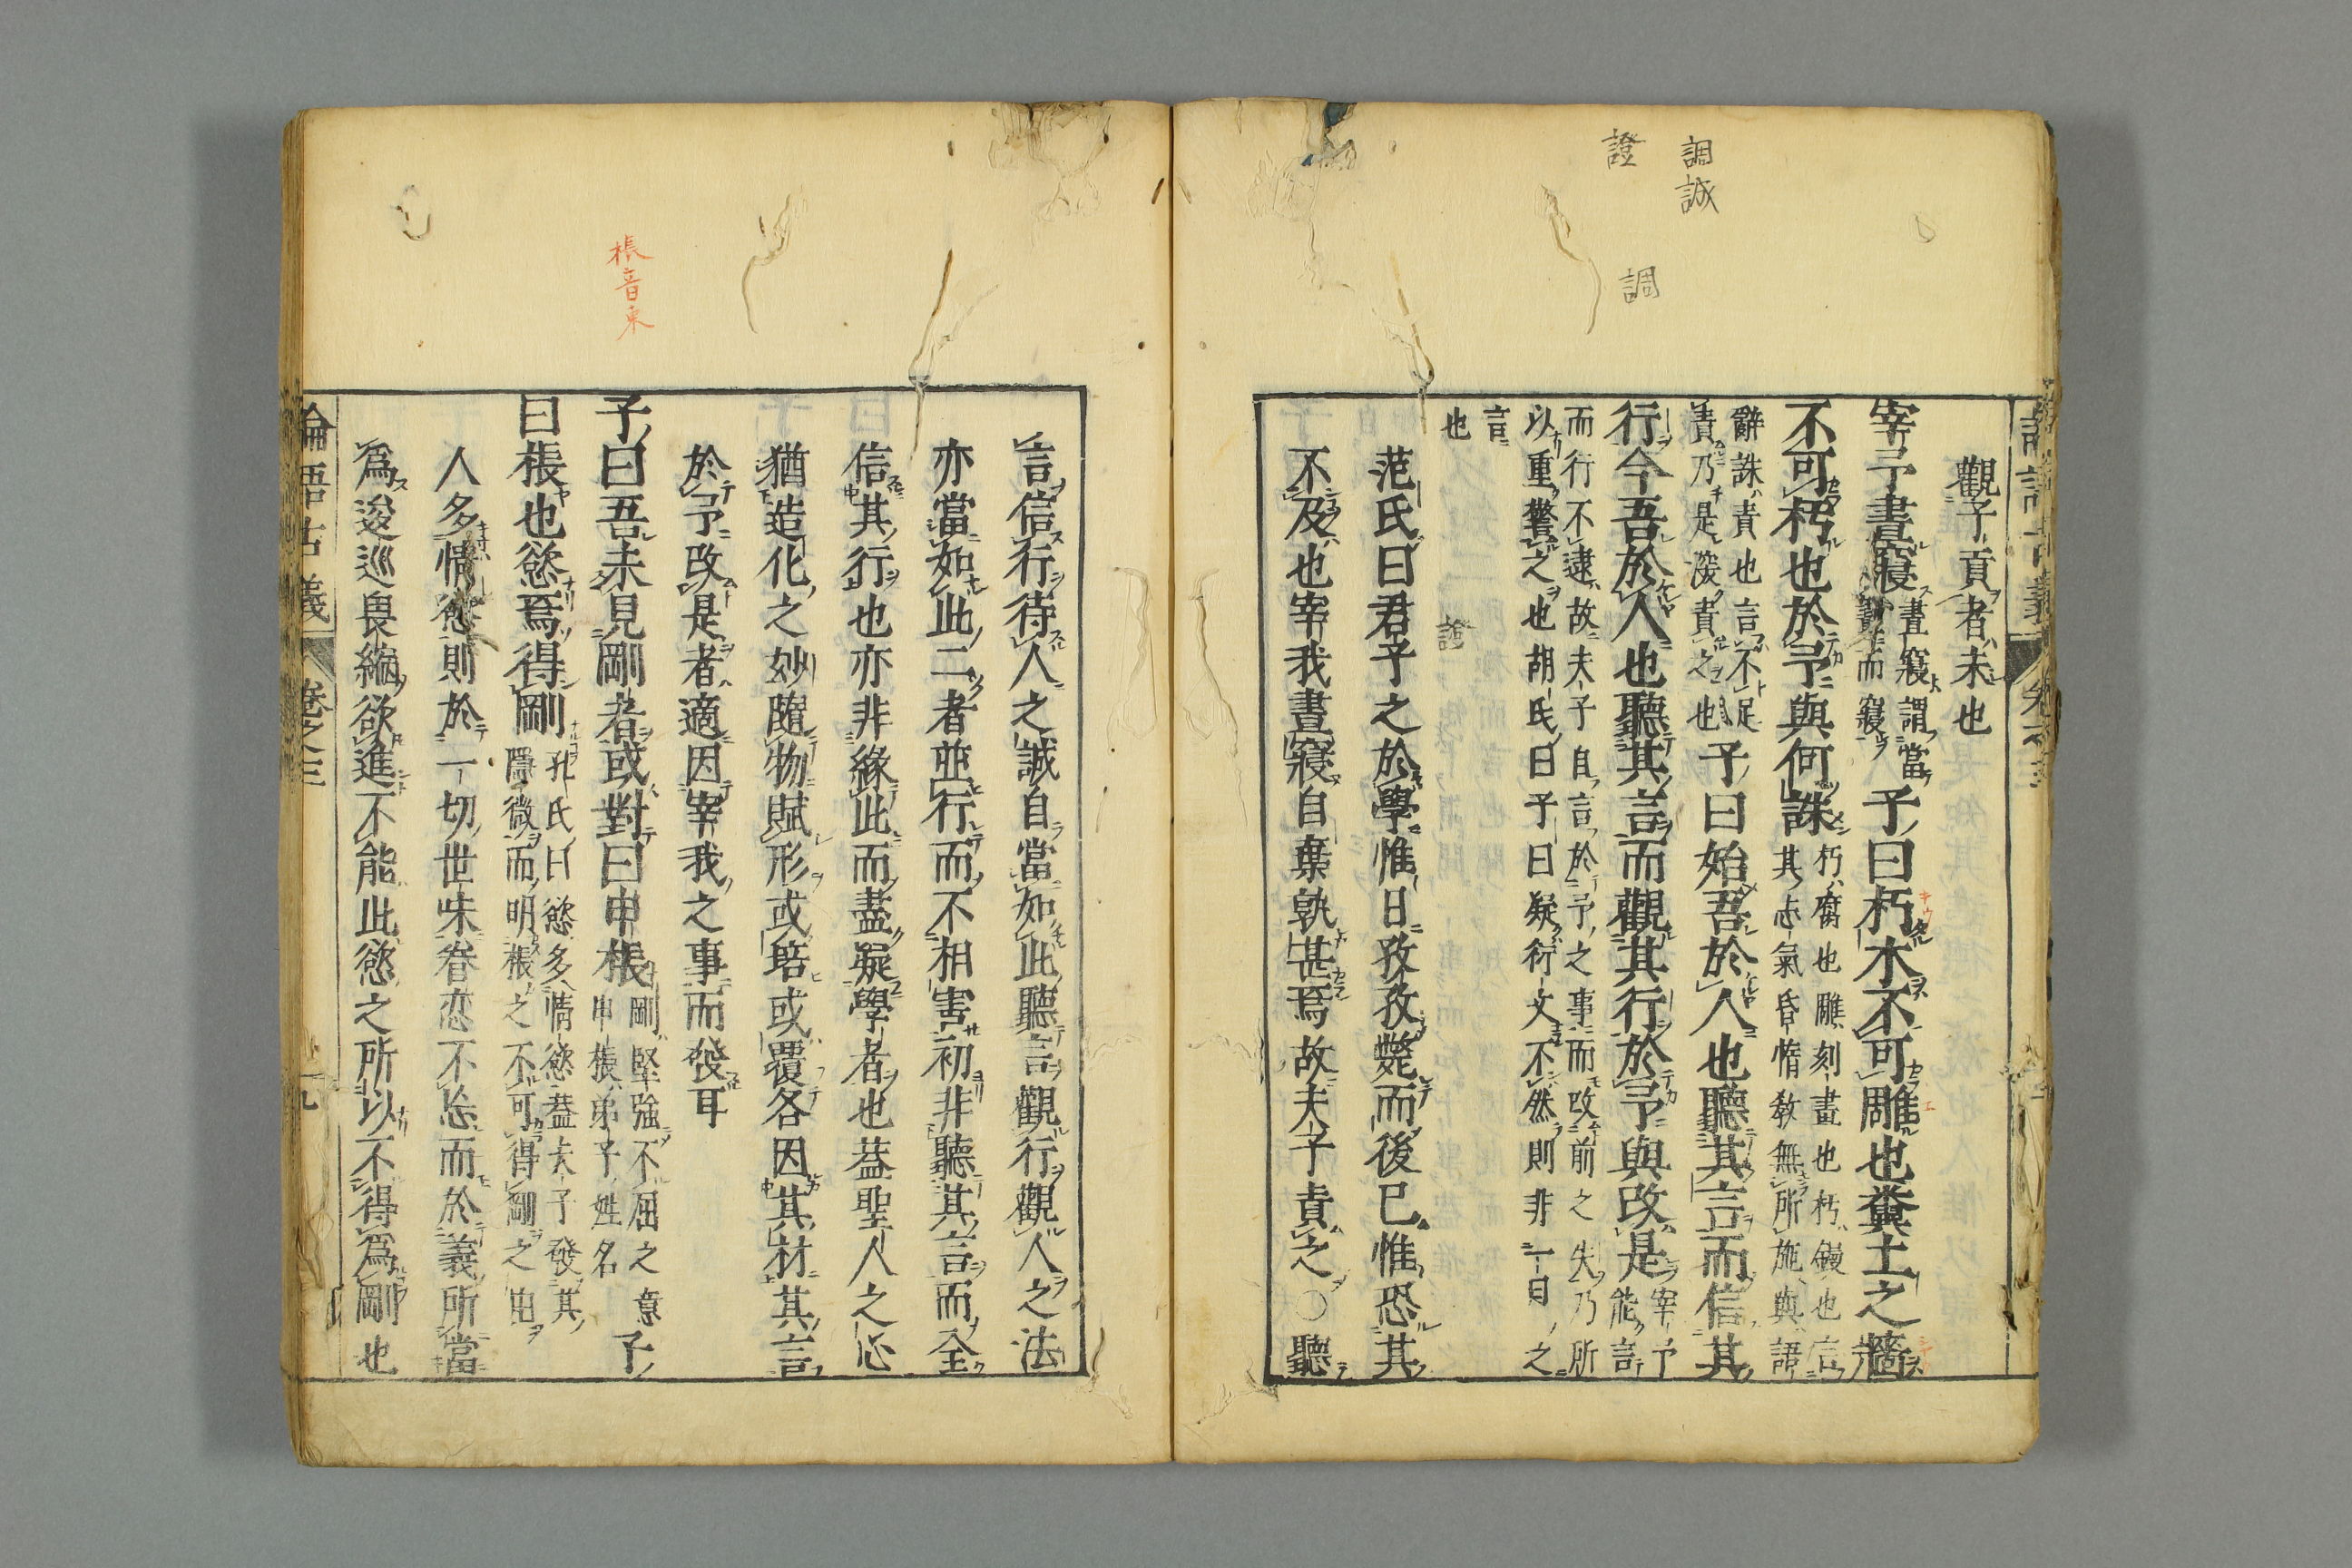 調誠
證
調
觀子貢者未也
宰予晝寢晝寢謂當
晝而寢子曰朽木不可雕也糞土之牆
不可杇也於予與何誅朽腐也雕刻畫也杇鏝也言
其志氣昏惰教無所施與語
辭誅責也言不足
責乃是深責之也子曰始吾於人也聽其言而信其
行今吾於人也聽其言而觀其行於予與改是宰予
能言
而行不逮故夫子自言於予之事而改前之失乃所
以重警之也胡氏曰子曰疑衍文不然則非一日之
言
也
證
范氏曰君子之於學惟日孜孜斃而後已惟恐其
不及也宰我晝寢自棄孰甚焉故夫子責之○聽
言信行待人之誠自當如此聽言觀行觀人之法
亦當如此二者並行而不相害初非聽其言而全
信其行也亦非緣此而盡疑學者也蓋聖人之心
猶造化之妙隨物賦形或培或覆各因其材其言
於予改是者適因宰我之事而發耳
棖音東
子曰吾未見剛者或對曰申棖剛堅強不屈之意
申棖弟子姓名子
曰棖也慾焉得剛孔氏曰慾多情慾蓋夫子發其
隱微而明棖之不可得剛之由
人多情慾則於一切世味眷恋不忘而於義所當
為逡巡畏縮欲進不能此慾之所以不得為剛也
論語古義
卷之三
九